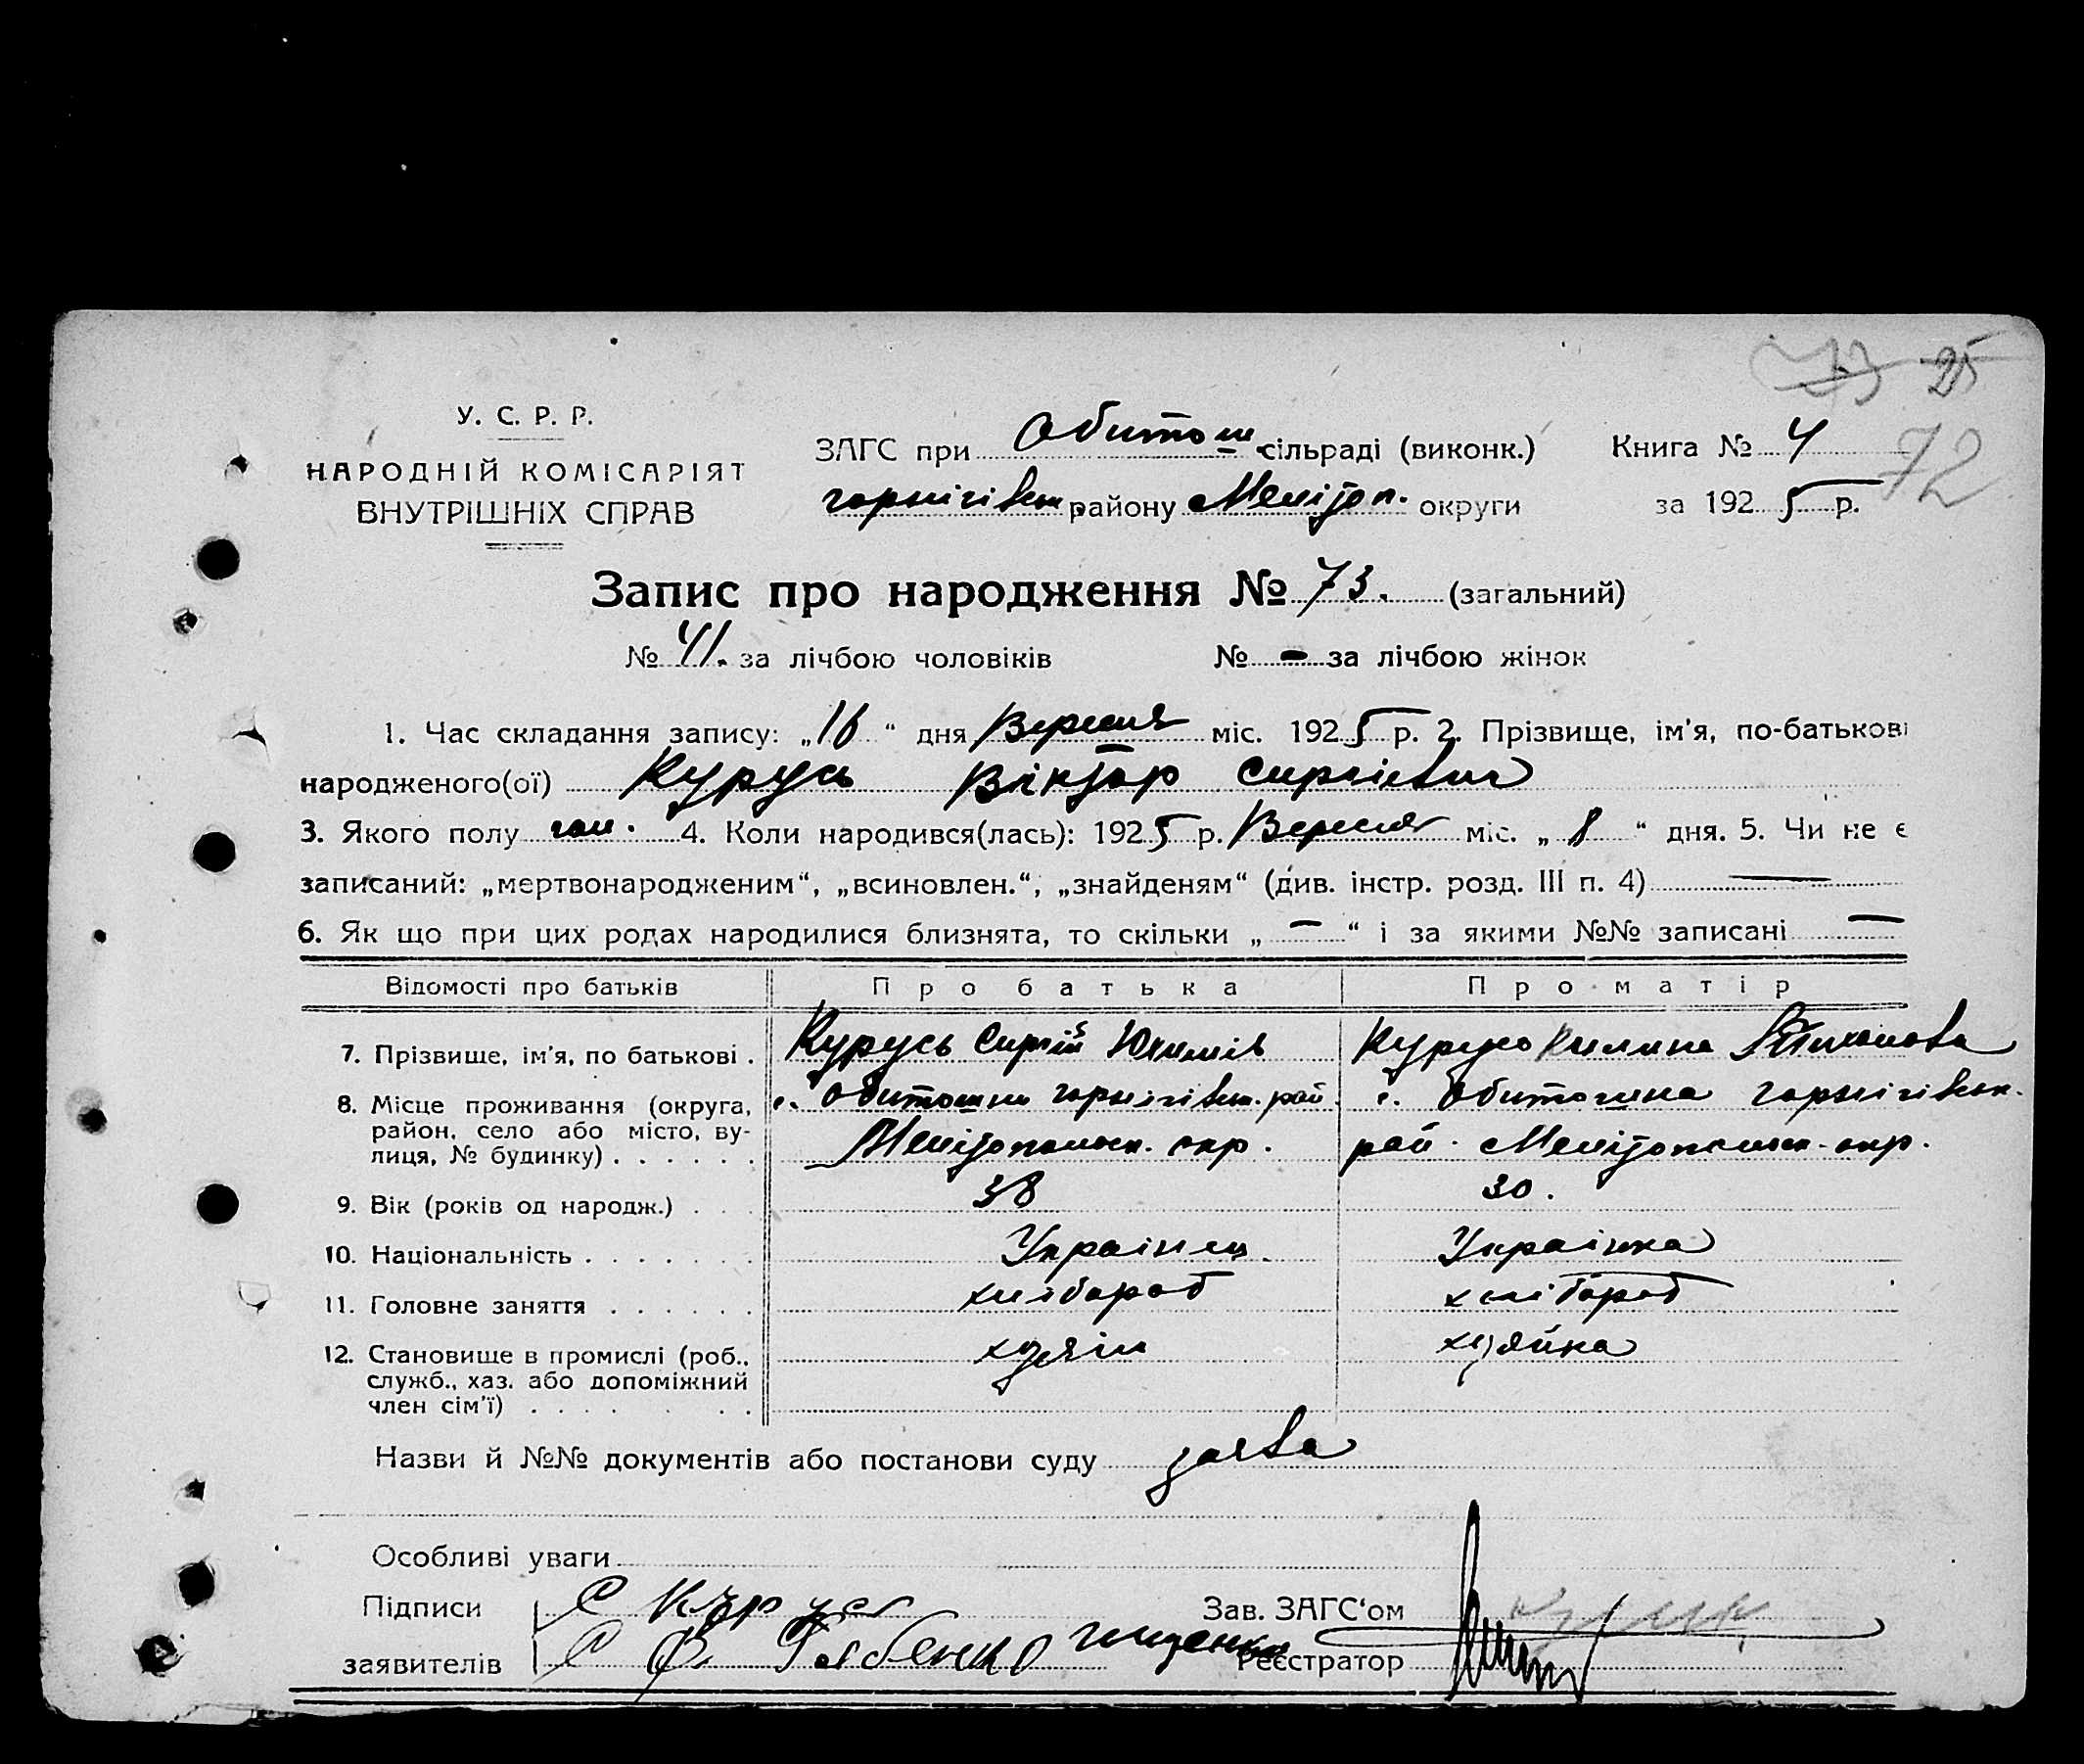 73 25
У. С. Р. Р.
НАРОДНІЙ КОМІСАРІЯТ
ВНУТРІШНІХ СПРАВ
ЗАГС при Обиточ сільраді (виконк.) Книга № 4
72
чорнігівськ району Мелітоп. округи за 1925 р.
Запис про народження № 73. (загальний)
№ 41. за лічбою чоловіків № – за лічбою жінок
1. Час складання запису: „16“ дня Вересня міс. 1925 р. 2. Прізвище, ім'я, по-батькові
народженого(ої) Курусь Віктор Сиргієвич
3. Якого полу чол. 4. Коли народився(лась): 1925 р. Вересня міс. „8“ дня. 5. Чи не є
записаний: „мертвонародженим“, „всиновлен.“, „знайденям“ (див. інстр. розд. III п. 4) —
6. Як що при цих родах народилися близнята, то скільки „–“ і за якими №№ записані —
Відомості про батьків Про батька Про матір
7. Прізвище, ім'я, по батькові . Курусь Сиргій Юхимів Курусь Килина
8. Місце проживання (округа, с. Обиточни чорнігівськ. рай. с. Обиточна чорнігівськ.
район, село або місто, ву-
лиця, № будинку) . . . . . . Мелітопольск. окр. рай. Мелітопольск. окр.
9. Вік (років од народж.) . . . 38 30.
10. Національність . . . . . . . Українец. Українка
11. Головне заняття . . . . . . хлібороб хлібороб
12. Становище в промислі (роб., хозяін хозяйка
служб., хаз. або допоміжний
член сім'ї) . . . . . . .
Назви й №№ документів або постанови суду заява
Особливі уваги
Підписи С Курус Зав. ЗАГС‘ом
заявителів Реєстратор